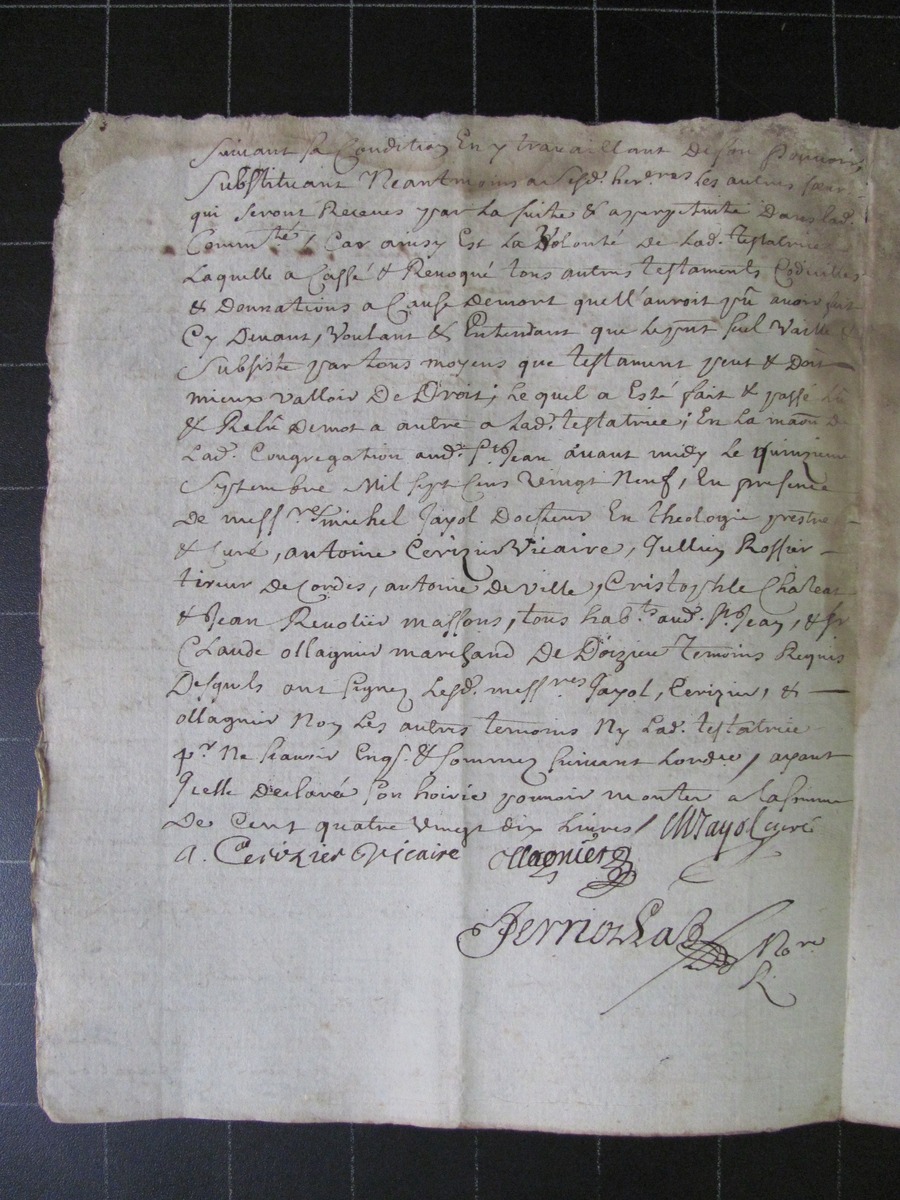 Suivant sa Condition En y travaillant De son Pouvoir,
Substituant Neantmoins a Sesd. her.eres Les autres sœurs
qui seront Receues par La suite & a perpetuité Dans lad.
Comm.té, Car ainsy Est La Volonté De Lad. testatrice
Laquelle a Cassé & Revoqué tous autres testaments Codicilles
& Donnations a Cause Demort quell'auroit pû avoir fait
Cy Devant, Voulant & Entendant que Le pnt seul Vaille &
Subsiste par tous moyens que testament peut & Doit
mieux Valloir De Droit; Lequel a Esté fait & passé Lû
& Relû Demot a autre a Lad. testatrice; En La maon De
Lad. Congregation aud. St Jean avant midy Le quinzieme
Septembre Mil sept Cens Vingt Neuf, En presence
De mess.re michel Jayol Docteur En theologie prestre
& Curé, antoine Cerizier Vicaire, Jullien Rossier
tireur De Cordes, antoine De Ville, Cristophle
& Jean Revolier massons, tous hab.ts aud. St Jean, & sr
Claude ollagnier marchand De Doizieu Temoins Requis
Desquels ont signez Lesd. mess.res Jayol, Cerizier, &
ollagnier Non Les autres temoins Ny Lad. testatrice
p.r Ne scavoir Enqs. & sommez suivant Lordce, ayant
Jcelle Declaré son hoirie pouvoir monter a La somme
De Cent quatre Vingt Dix Livres / Jayol curé
A. Cerizier Vicaire ollagnier
No.re
R.